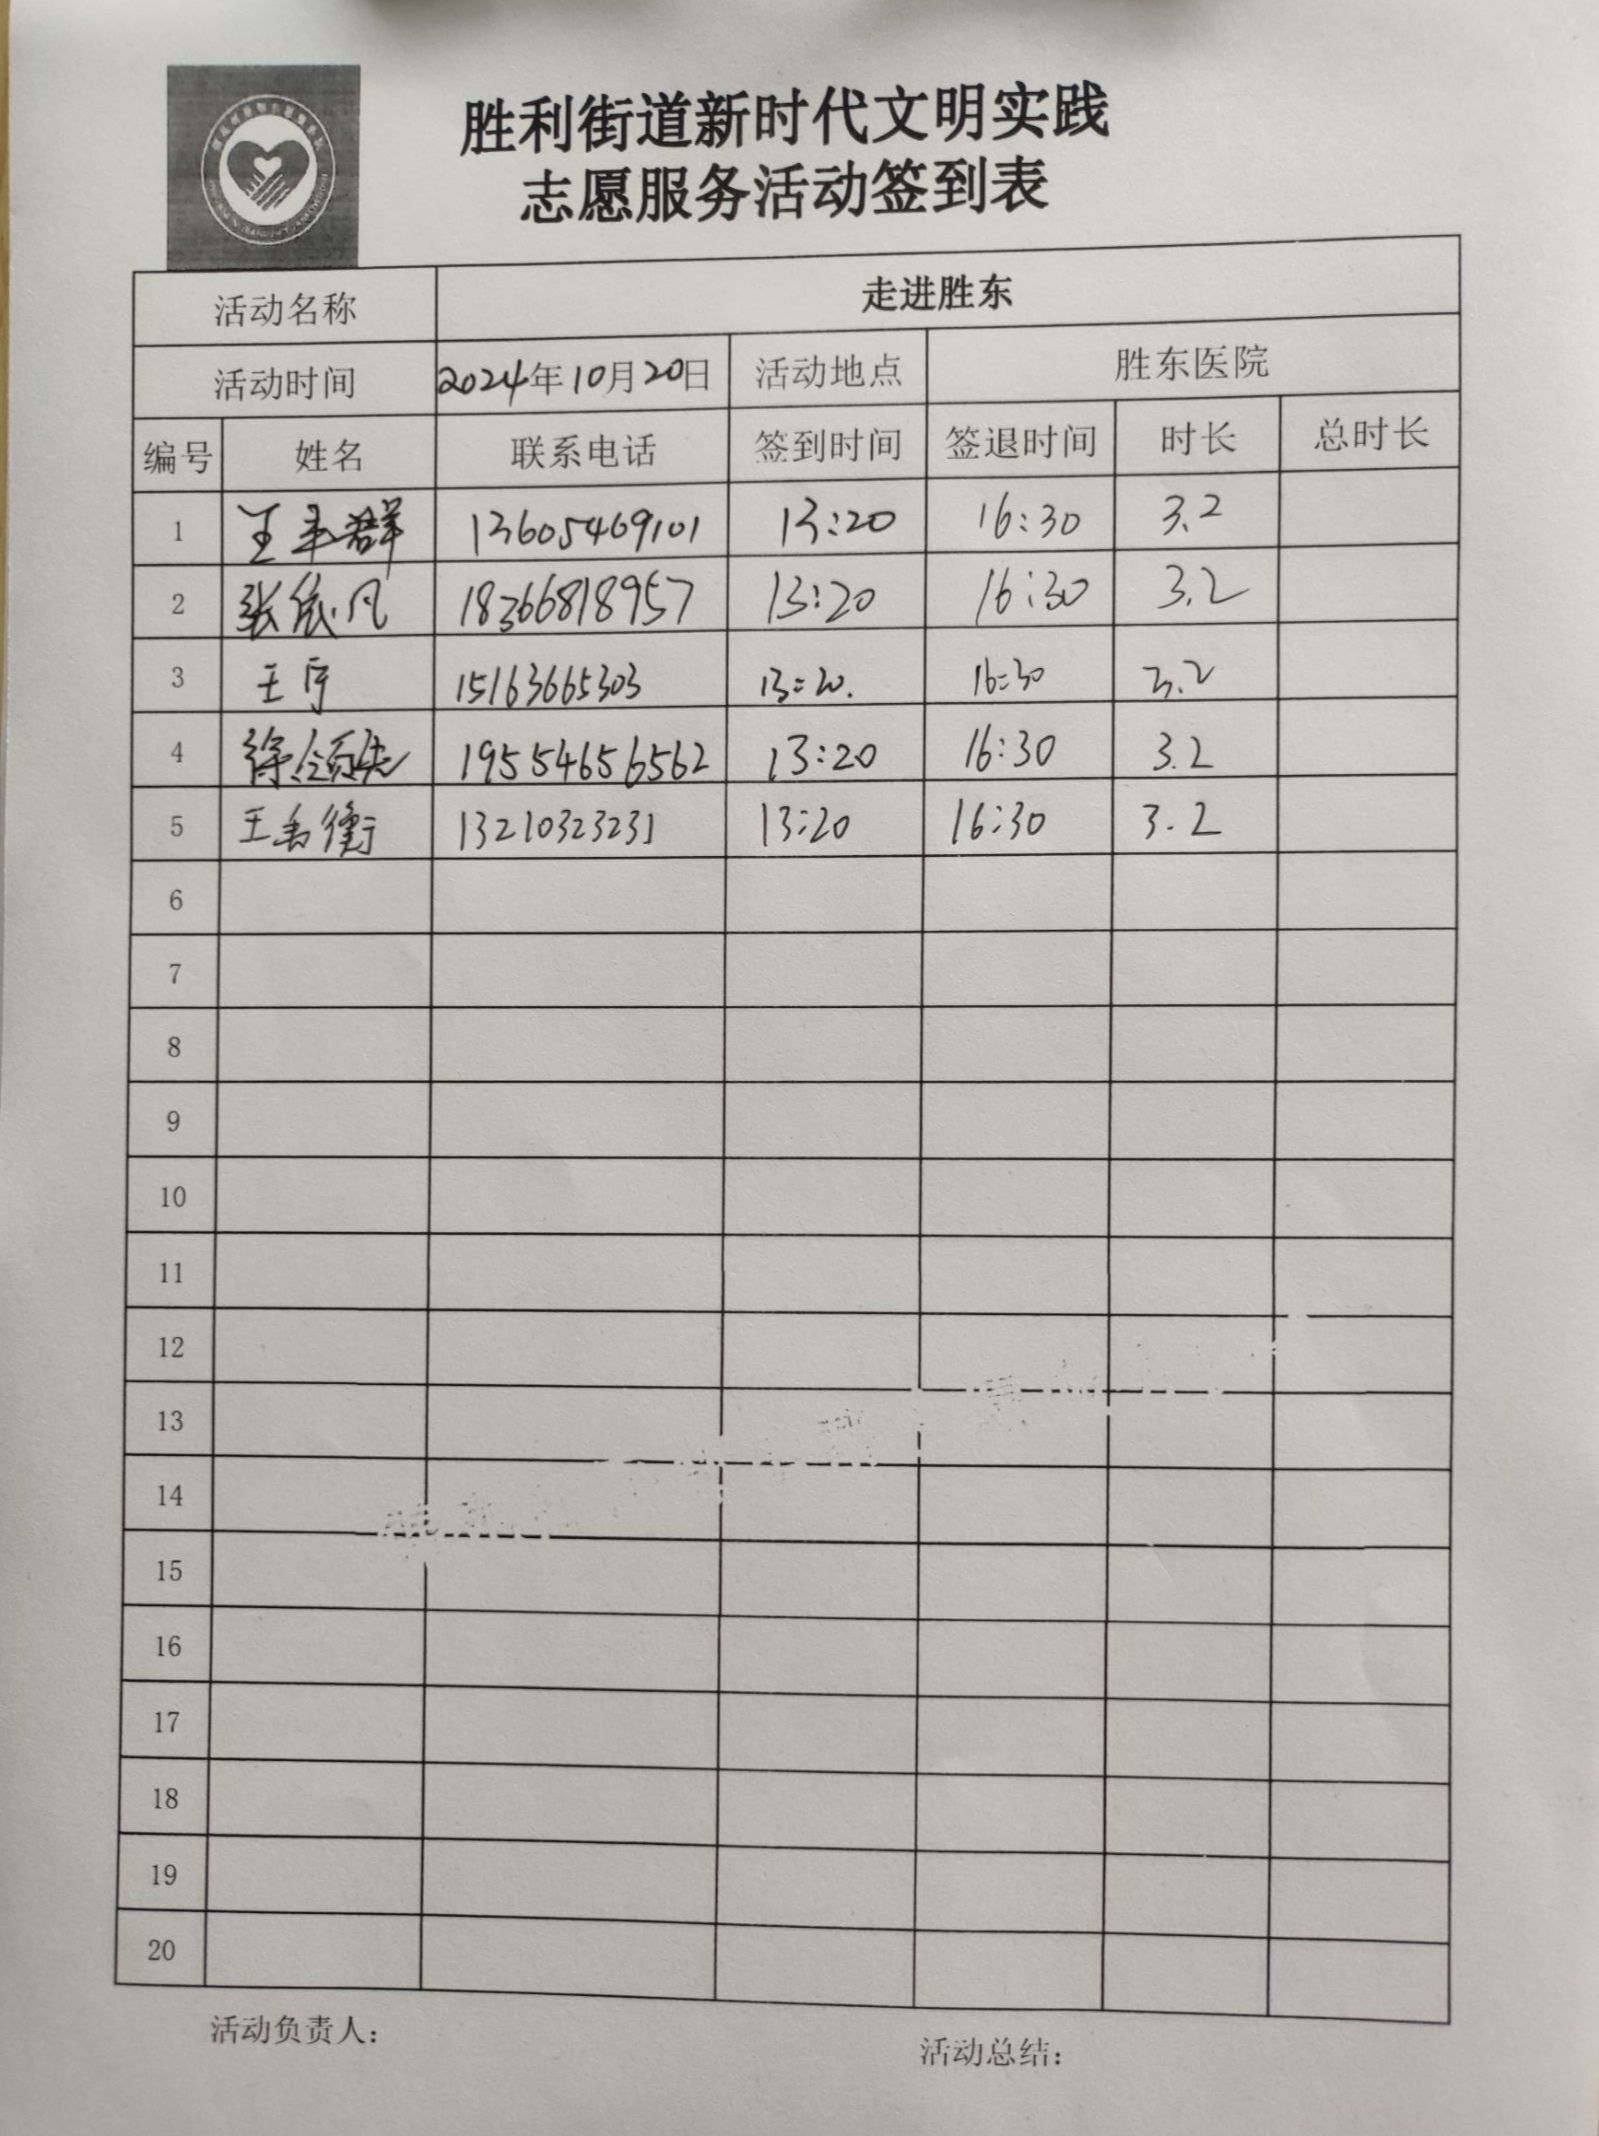 胜利街道新时代文明实践
志愿服务活动签到表
活动名称 走进胜东
活动时间 2024年10月20日 活动地点 胜东医院
编号 姓名 联系电话 签到时间 签退时间 时长 总时长
1 王 群 13605469101 13:20 16:30 3.2
2 张依凡 18366818957 13:20 16:30 3.2
3 王宇 15163665303 13:20. 16:30 3.2
4 徐 19554656562 13:20 16:30 3.2
5 王 衡 13210323231 13:20 16:30 3.2
6
7
8
9
10
11
12
13
14
15
16
17
18
19
20
活动负责人: 活动总结: